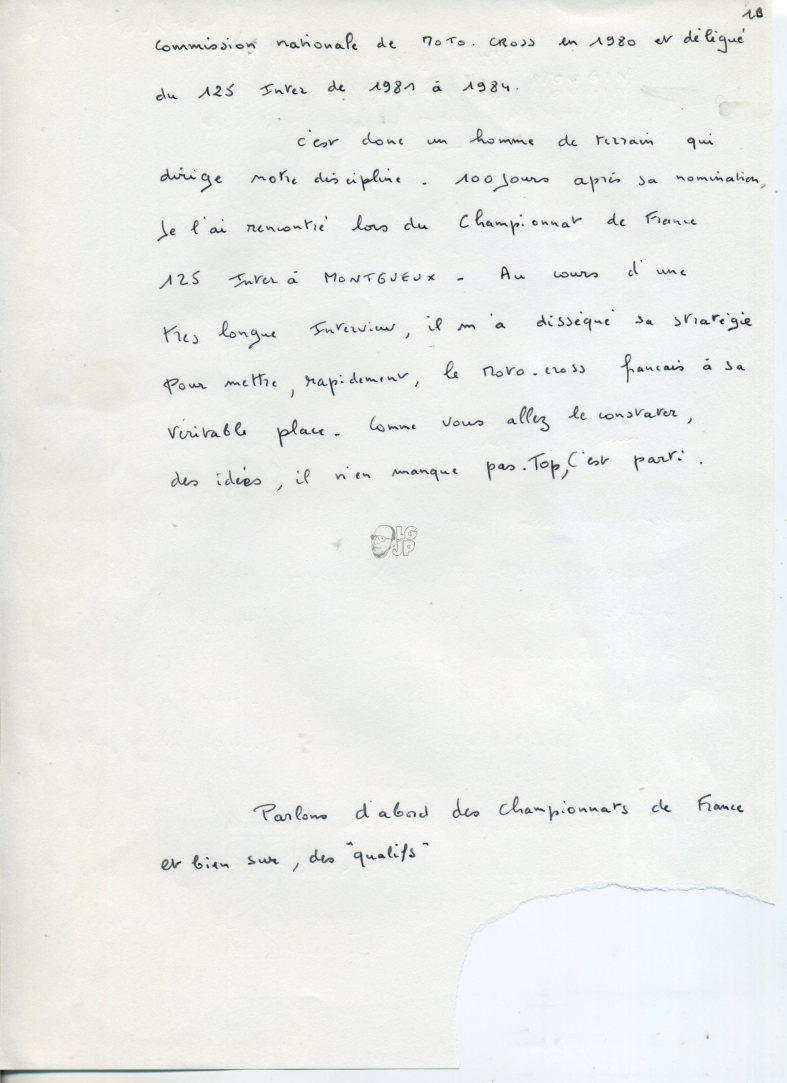 1B
Commission nationale de MOTO. CROSS en 1980 et délégué
du 125 Inter de 1981 à 1984.
C'est donc un homme de terrain qui
dirige notre discipline - 100 jours après sa nomination,
Je l'ai rencontré lors du Championnat de France
125 Inter à MONTGUEUX - Au cours d'une
très longue Interview, il m'a disséqué sa stratégie
pour mettre, rapidement, le Moto-cross francais à sa
véritable place - Comme vous allez le constater,
des idées, il n'en manque pas. Top, C'est parti.
LG
JP
Parlons d'abord des Championnats de France
et bien sur, des "qualifs"